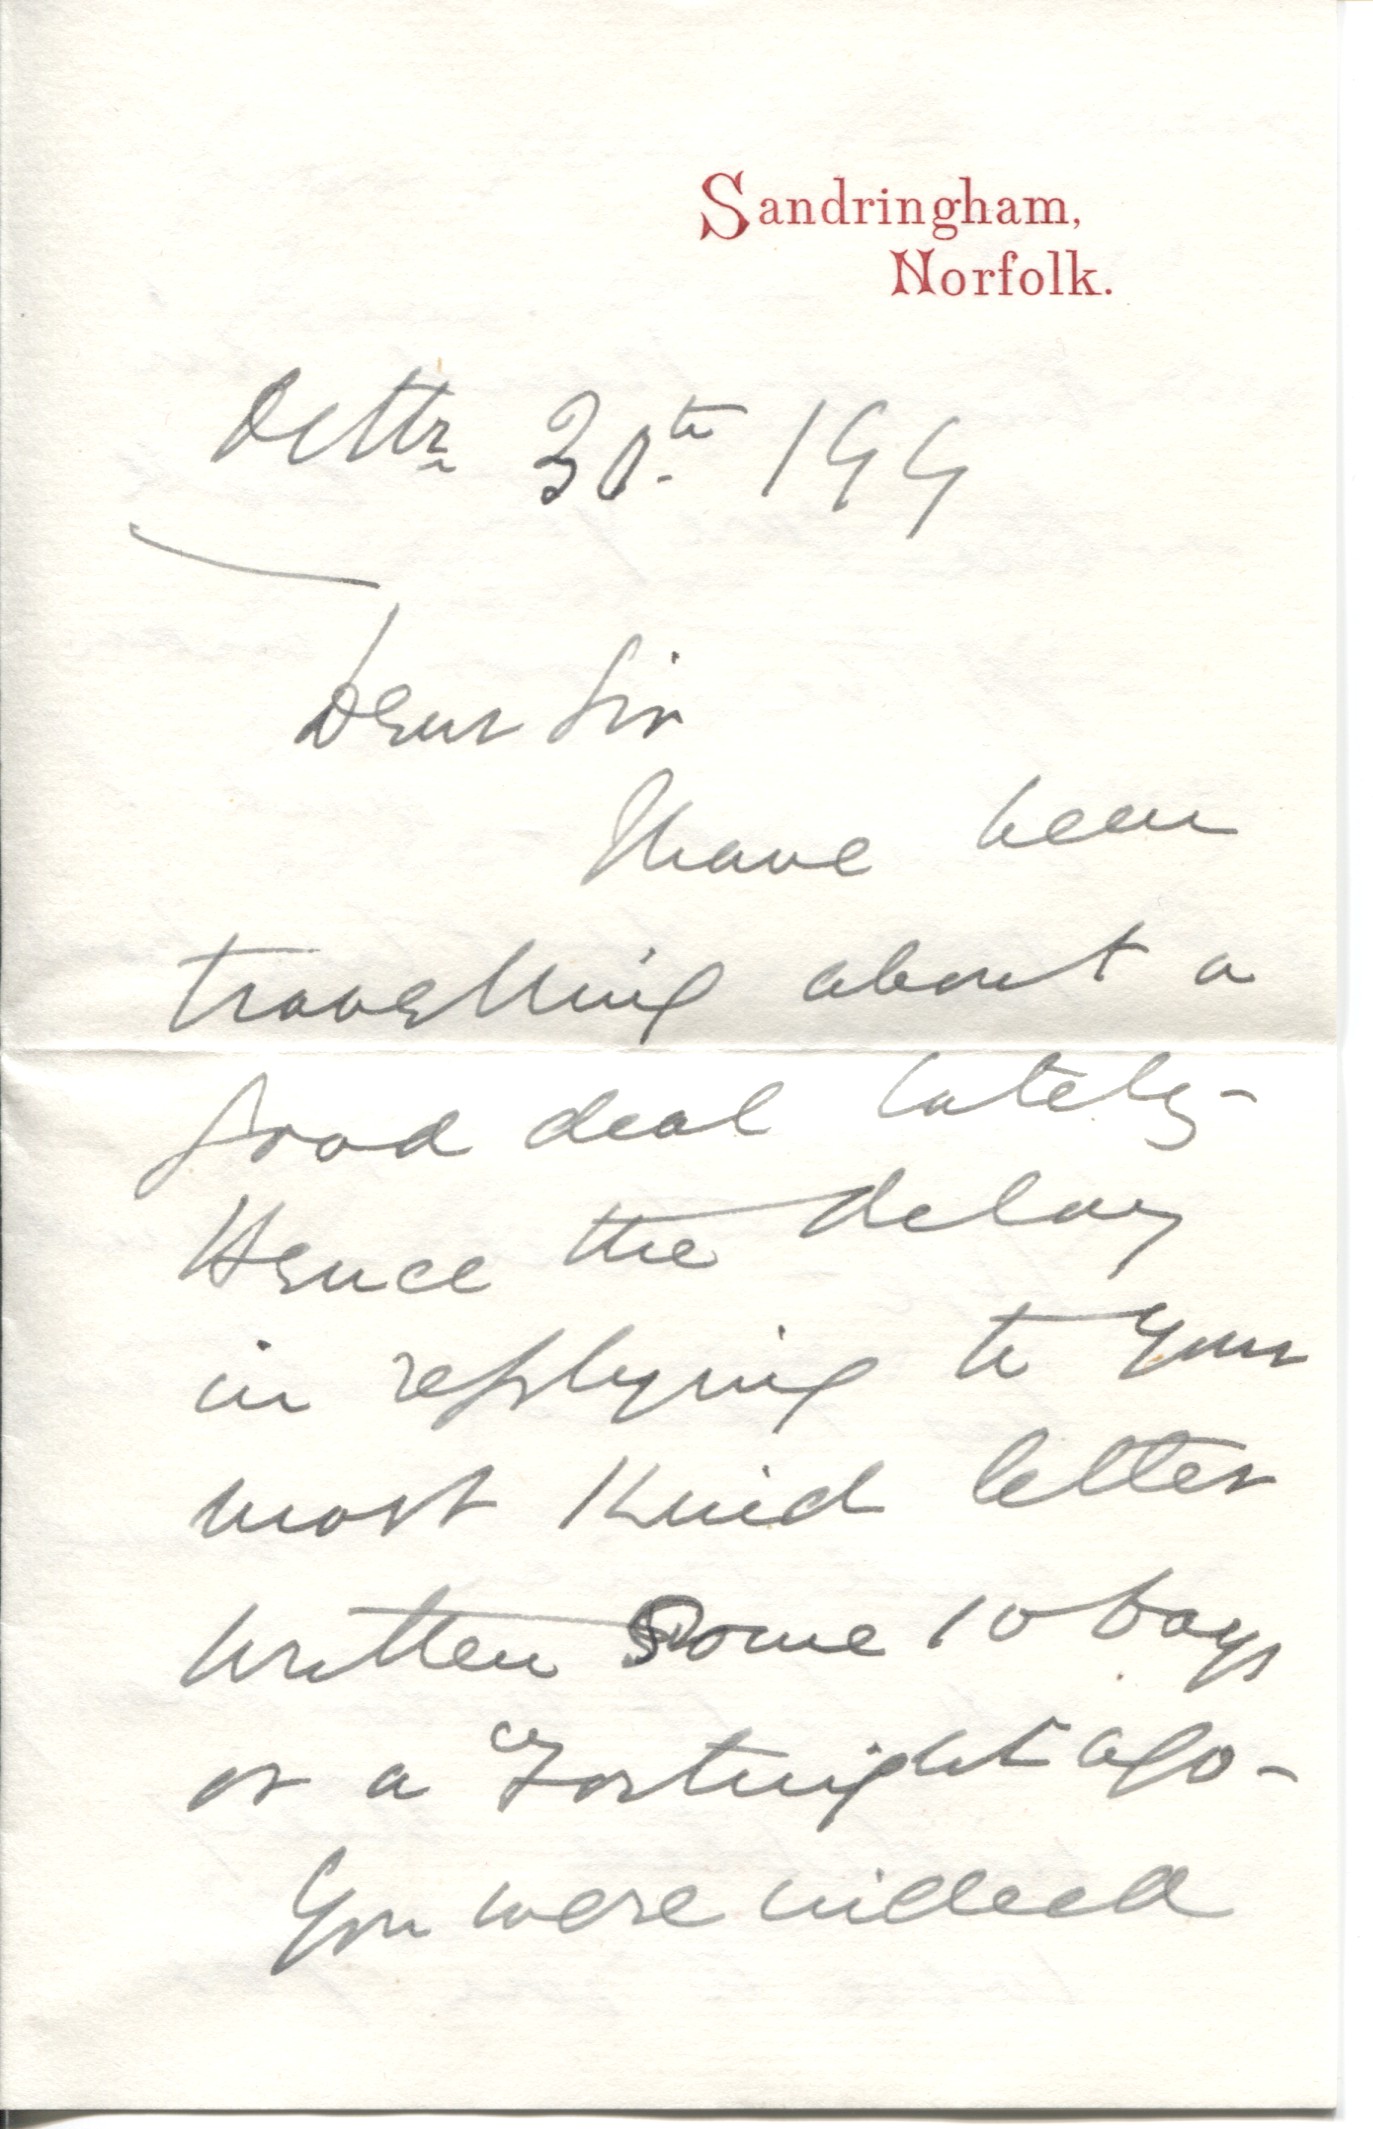 Sandringham,
Norfolk.
Octbr 30th 199
Dear Sir
I have been
travelling about a
good deal lately -
Hence the delay
in replying to your
most Kind letter
written some 10 days
or a Fortnight ago -
You were indeed